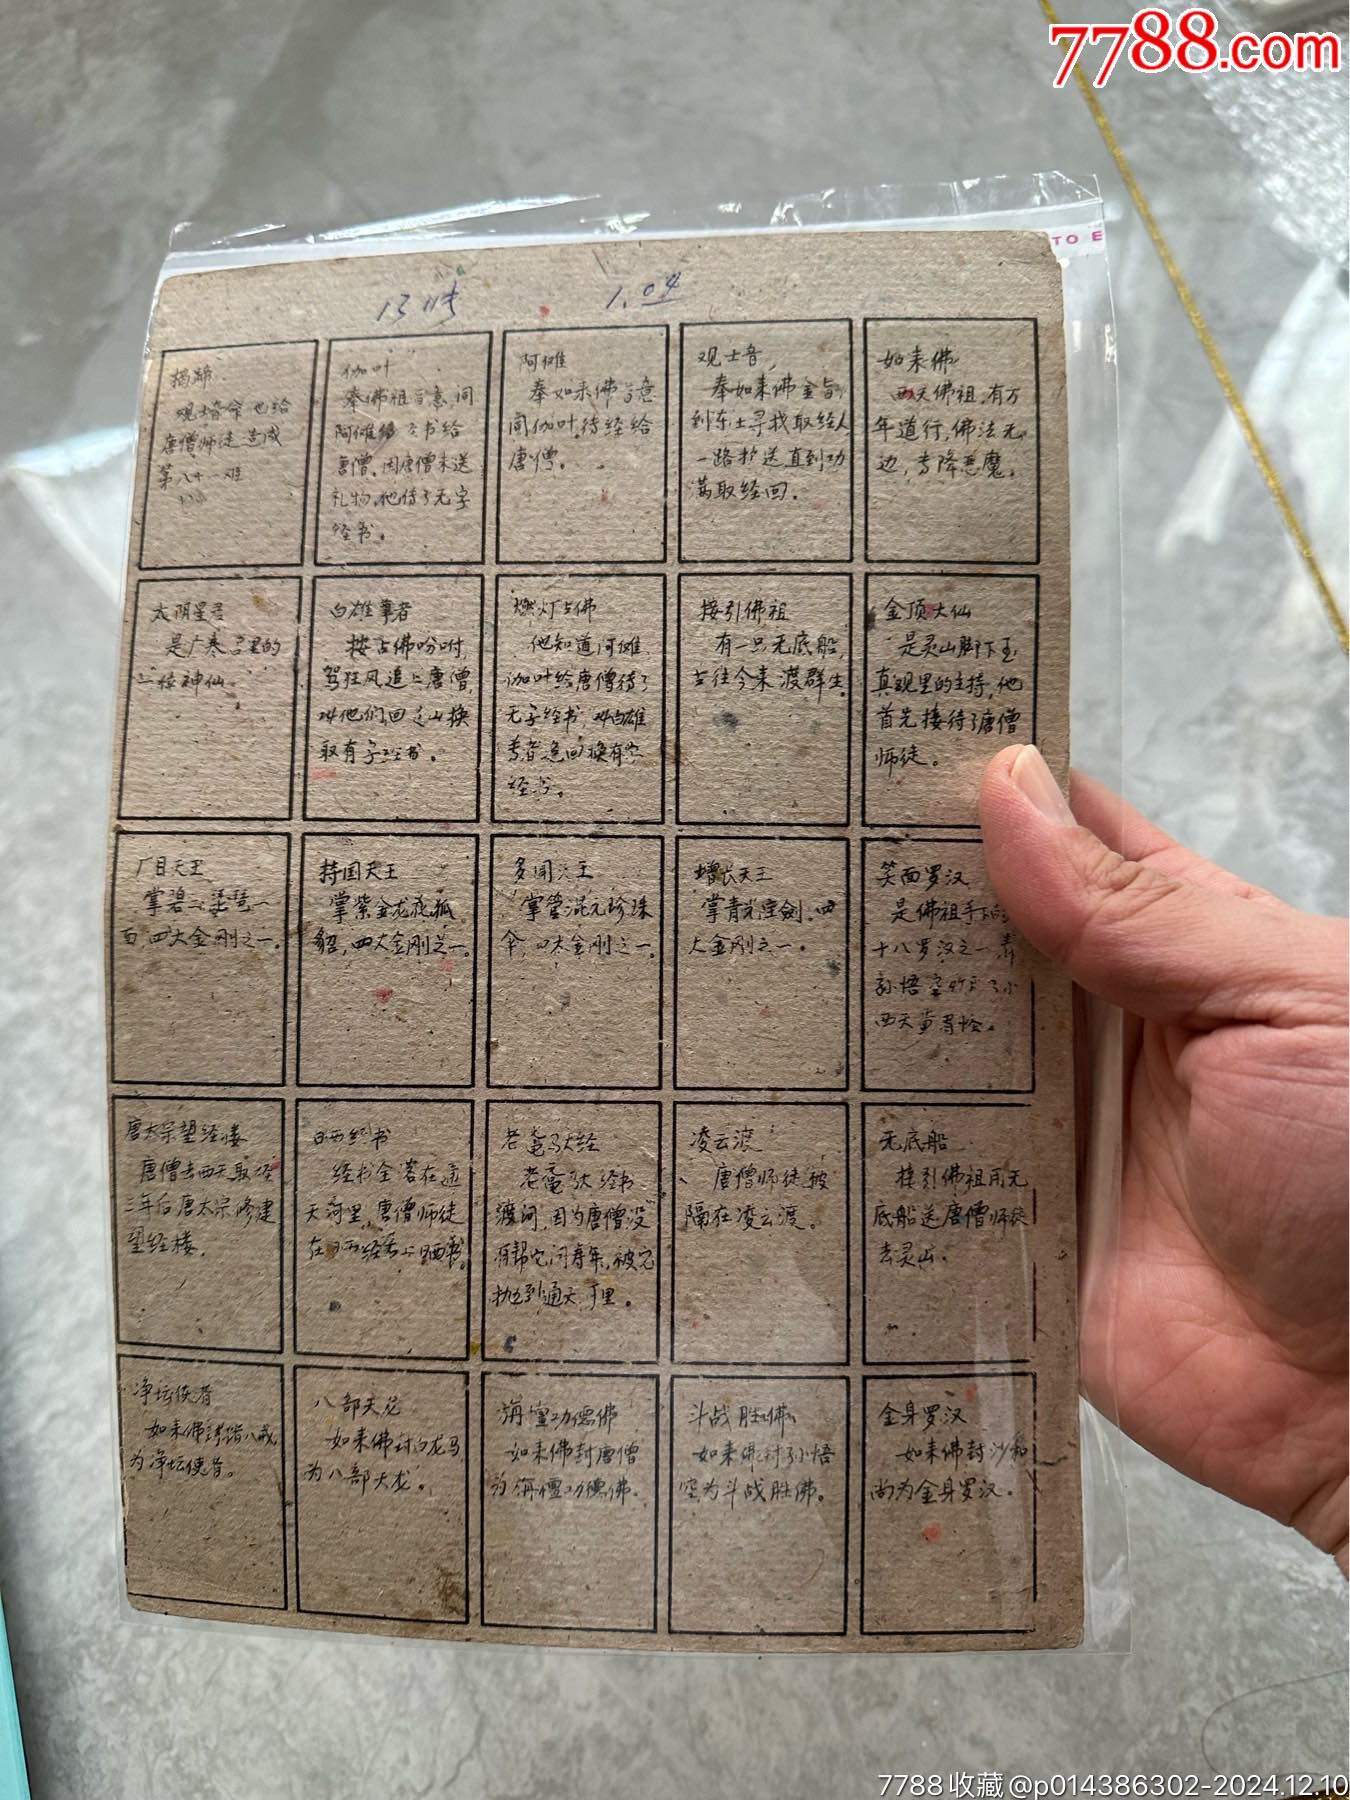 7788.com
TO E
1.04
揭谛
观士音命他给
唐僧师徒造成
第八十一难
伽叶
奉佛祖旨意,同
阿傩
书给
唐僧,因唐僧未送
礼物,他传了无字
经书。
阿傩
奉如来佛旨意
同伽叶,传经给
唐僧。
观士音,
奉如来佛金旨,
到东土寻找取经人
一路护送直到功
满取经回。
如来佛
西天佛祖,有万
年道行,佛法无
边,专降恶魔。
太阴星君
是广寒宫里的
一位神仙。
白雄尊者
按古佛吩咐,
驾狂风追上唐僧,
叫他们回灵山换
取有字经书。
燃灯古佛
他知道阿傩,
伽叶给唐僧传了
无字经书,叫白雄
尊者追回换有字
经书。
接引佛祖
有一只无底船,
古往今来渡群生。
金顶大仙
是灵山脚下玉
真观里的主持,他
首先接待了唐僧
师徒。
广目天王
掌碧玉琵琶一
面,四大金刚之一。
持国天王
掌紫金龙花狐
貂,四大金刚之一。
多闻天王
掌管混元珍珠
伞,四大金刚之一。
增长天王
掌青光宝劍,四
大金刚之一。
笑面罗汉
是佛祖手下的
十八罗汉之一,
孙悟空
西天黄眉怪。
唐太宗望经楼
唐僧去西天取经
三年后唐太宗修建
望经楼。
晒经书
经书全落在通
天河里,唐僧师徒
在晒经石上晒书。
老鼋驮经
老鼋驮经书
渡河,因为唐僧没
有帮它问寿年,被它
抛到通天河里。
凌云渡
唐僧师徒被
隔在凌云渡。
无底船
接引佛祖用无
底船送唐僧师徒
去灵山.
净坛使者
如来佛封猪八戒
为净坛使者。
八部天龙
如来佛封白龙马
为八部天龙。
旃檀功德佛
如来佛封唐僧
为旃檀功德佛.
斗战胜佛
如来佛封孙悟
空为斗战胜佛。
金身罗汉
如来佛封沙和
尚为金身罗汉.
7788收藏@p014386302-2024.12.10